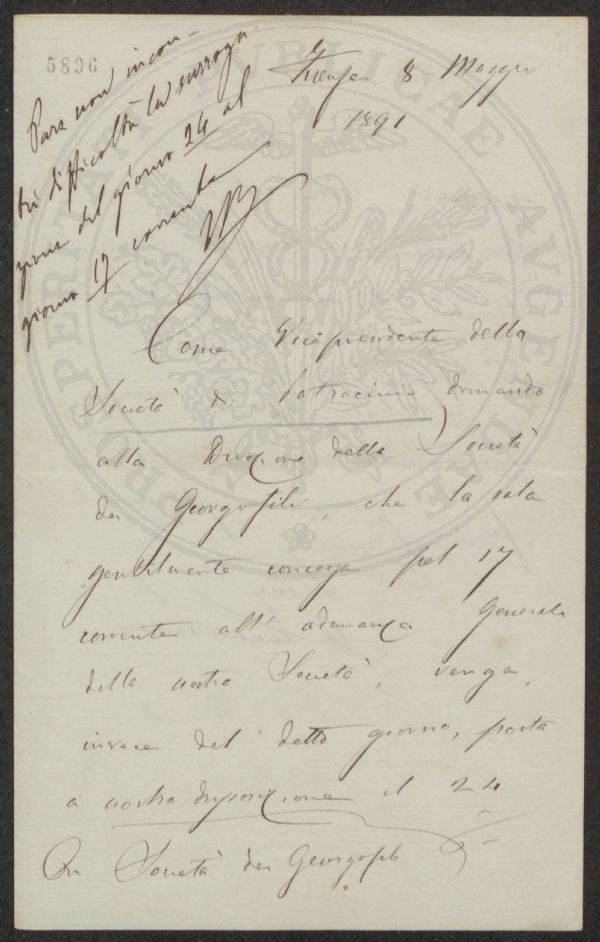 5896
Pare non incon-
tri difficoltà la surroga
zione del giorno 24 al
giorno 17 corrente
Firenze 8 Maggio
1891
Come Vicepresidente della
Società di Patrocinio domando
alla Direzione della Società
dei Georgofili, che la sala
gentilmente concessa pel 17
corrente all' adunanza Generale
della nostra Società, venga,
invece del detto giorno, posta
a nostra disposizione il 24
On Società dei Georgofili
PROSPERITATI PUBLICAE AVGENDAE